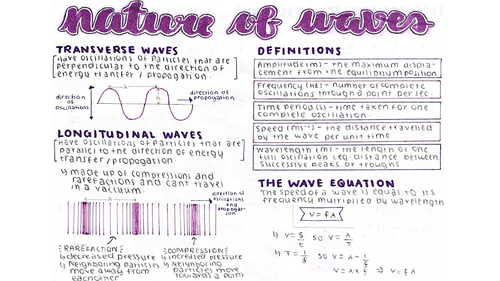 nature of waves
TRANSVERSE WAVES
Have oscillations of particles that are
perpendicular to the direction of
energy transfer / propagation.
direction
of
oscillations
λ
direction of
propagation
LONGITUDINAL WAVES
Have oscillations of particles that are
parallel to the direction of energy
transfer/propagation.
↳ made up of compressions and
rarefactions and can't travel
in a vacuum
direction of
oscillations
and
propagation
RAREFACTION:
↳ decreased pressure
↳ Neighboring particles
move away from
each other
COMPRESSION:
↳ increased pressure
↳ Neighboring
particles move
towards a point
DEFINITIONS
Amplitude (m) - the maximum displa-
cement from the equilibrium position
Frequency (Hz) - number of complete
oscillations through a point per sec
Time period (s) - time taken for one
complete oscillation.
Speed (ms⁻¹) - the distance travelled
by the wave per unit time
Wavelength (m) - the length of one
full oscillation eg. distance between
successive peaks or troughs.
THE WAVE EQUATION
The speed of a wave is equal to its
frequency multiplied by wavelength
v = fλ
↳ v = s/t so v = λ/T
↳ T = 1/f so v = λ ÷ 1/f
v = λ × f ⇒ v = fλ